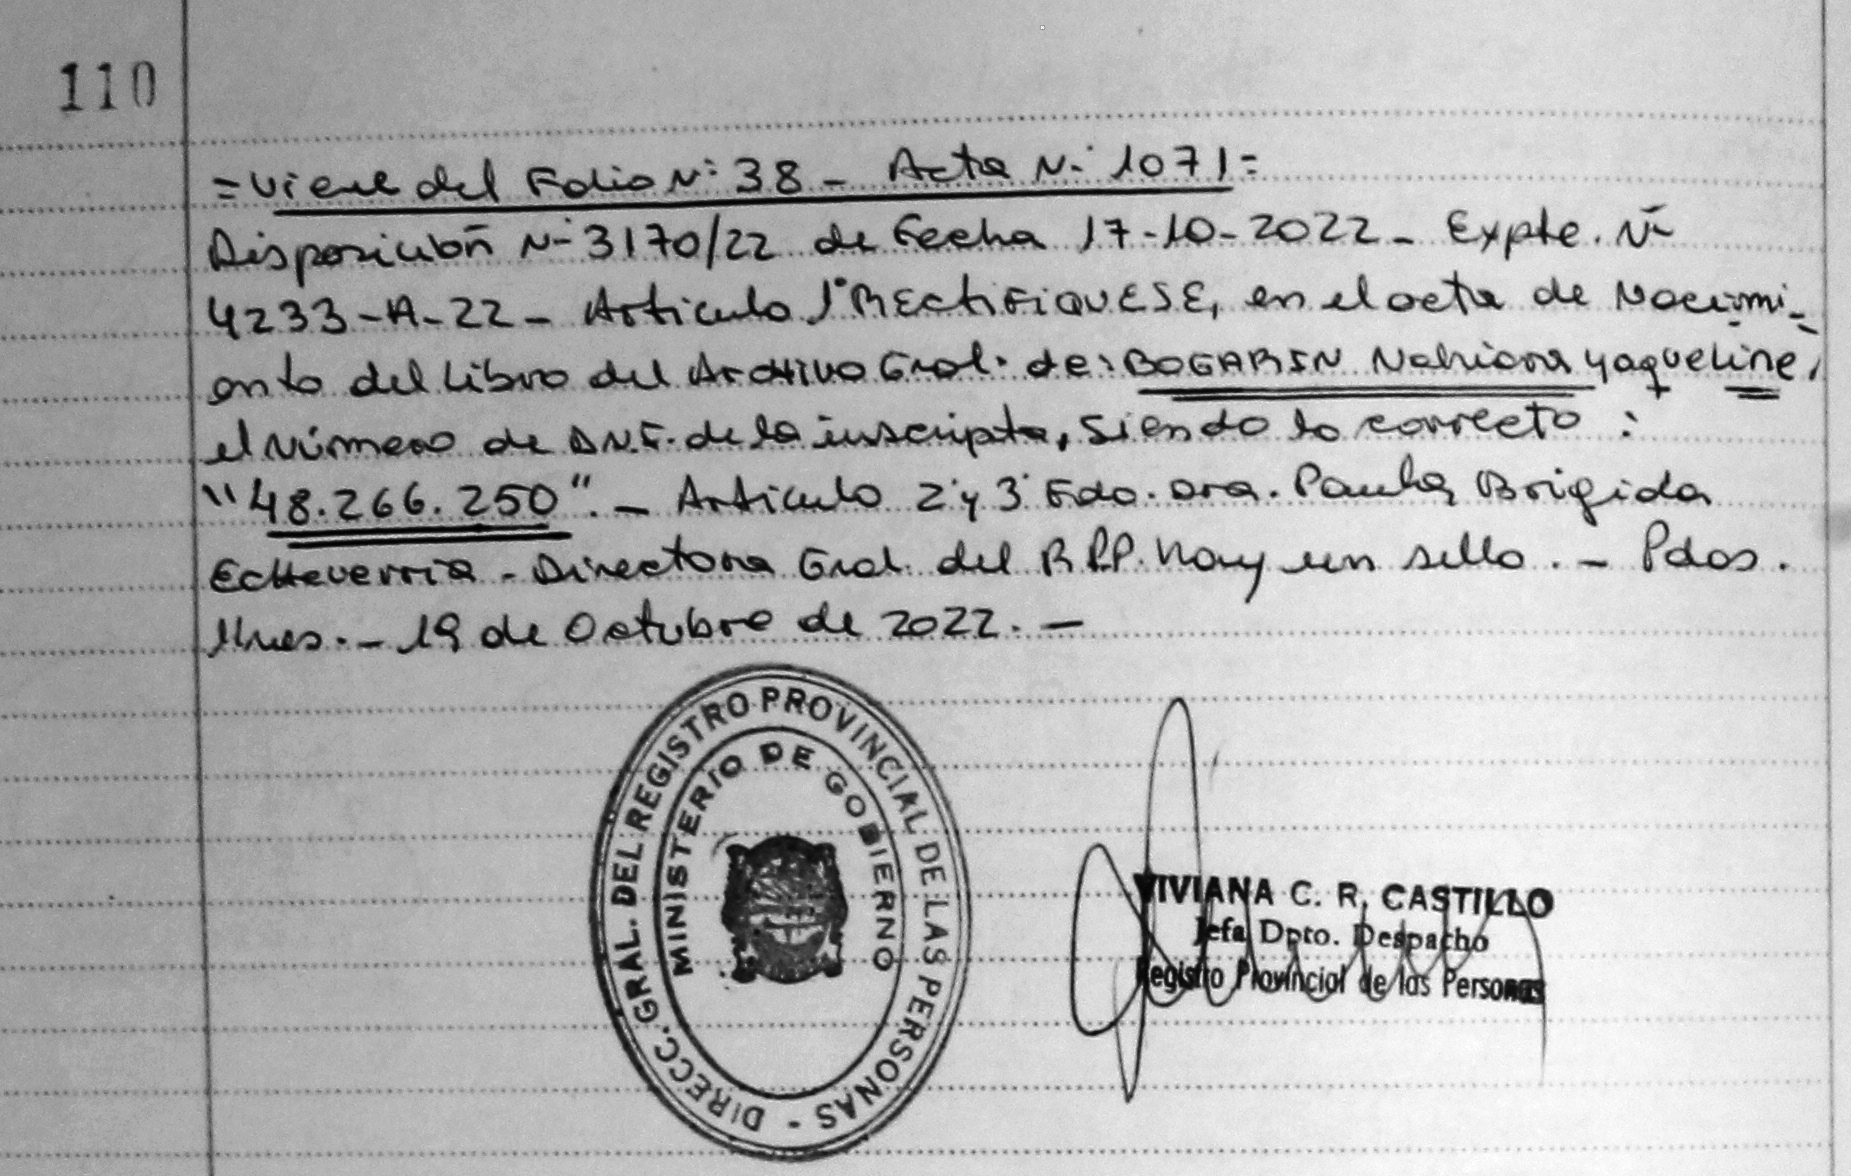 110
=Viene del Folio N° 38 - Acta N° 1071=
Disposición N° 3170/22 de Fecha 17-10-2022 - Expte. N°
4233-A-22 - Articulo 1° RECTIFIQUESE, en el acta de Nacimi-
ento del Libro del Archivo Gral. de: BOGARIN Nahiara Yaqueline,
el Número de D.N.I. de la inscripta, Siendo lo correcto :
"48.266.250". - Articulo 2° y 3° Fdo. Dra. Paula Brigida
Echeverria - Directora Gral. del R.P.P. Hay un sello. - Pdas.
Mnes. - 19 de Octubre de 2022. -
DIRECC. GRAL. DEL REGISTRO PROVINCIAL DE LAS PERSONAS -
MINISTERIO DE GOBIERNO
VIVIANA C. R. CASTILLO
Jefa Dpto. Despacho
Registro Provincial de las Personas